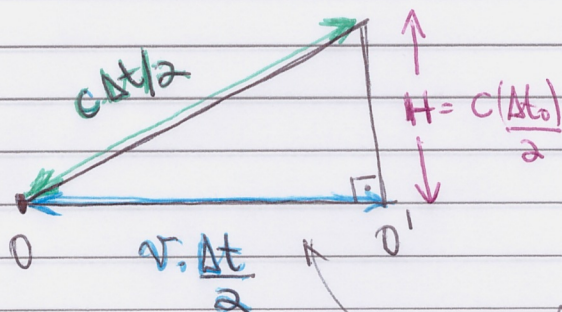 cΔt/2
H = c(Δt₀)
2
O
v. Δt
2
O'